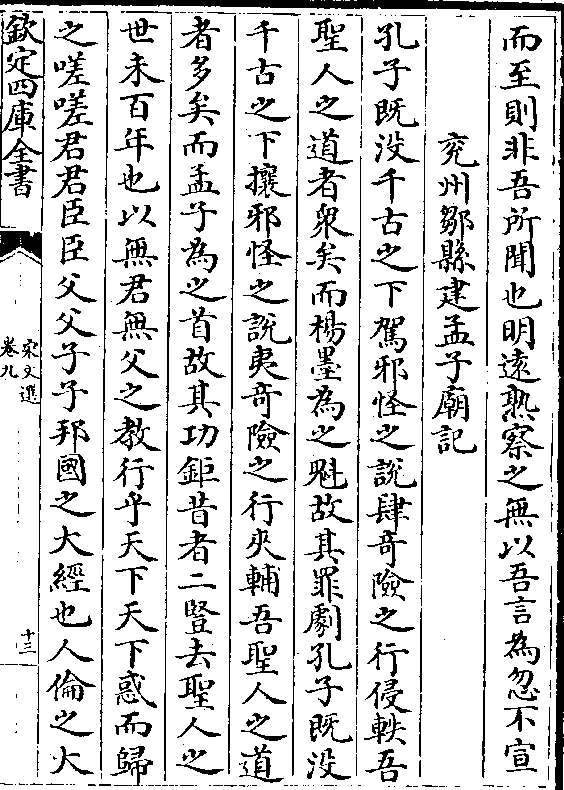 而至則非吾所聞也明遠熟察之無以吾言為忽不宣
兖州鄒縣建孟子廟記
孔子既没千古之下駕邪怪之說肆奇險之行侵軼吾
聖人之道者衆矣而楊墨為之魁故其罪劇孔子既没
千古之下攘邪怪之說夷奇險之行夾輔吾聖人之道
者多矣而孟子為之首故其功鉅昔者二豎去聖人之
世未百年也以無君無父之教行乎天下天下惑而歸
之嗟嗟君君臣臣父父子子邦國之大經也人倫之大
欽定四庫全書
宋文選
卷九
十三